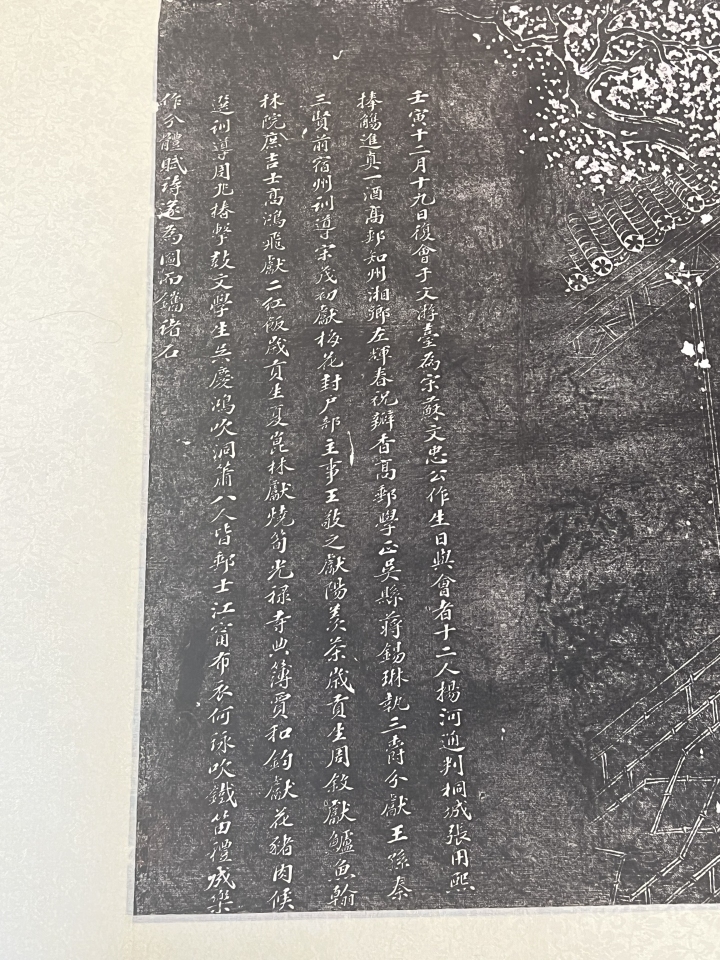 壬寅十二月十九日復會于文游臺為宋蘇文忠公作生日與會者十二人揚河通判桐城張用熙
捧觴進真一酒高郵知州湘鄉左輝春祝瓣香高郵學正吳縣蔣錫琳執三爵分獻王孫秦
三賢前宿州訓導宋茂初獻梅花封戶部主事王敬之獻陽羨茶歲貢生周敘獻鱸魚翰
林院庶吉士高鴻飛獻二紅飯歲貢生夏崑林獻燒筍光祿寺典簿賈和鈞獻花豬肉候
選訓導周兆椿擊鼓文學生吳慶鴻吹洞簫八人皆郵士江甯布衣何詠吹鐵笛禮成樂
作分體賦詩遂為圖而鐫諸石